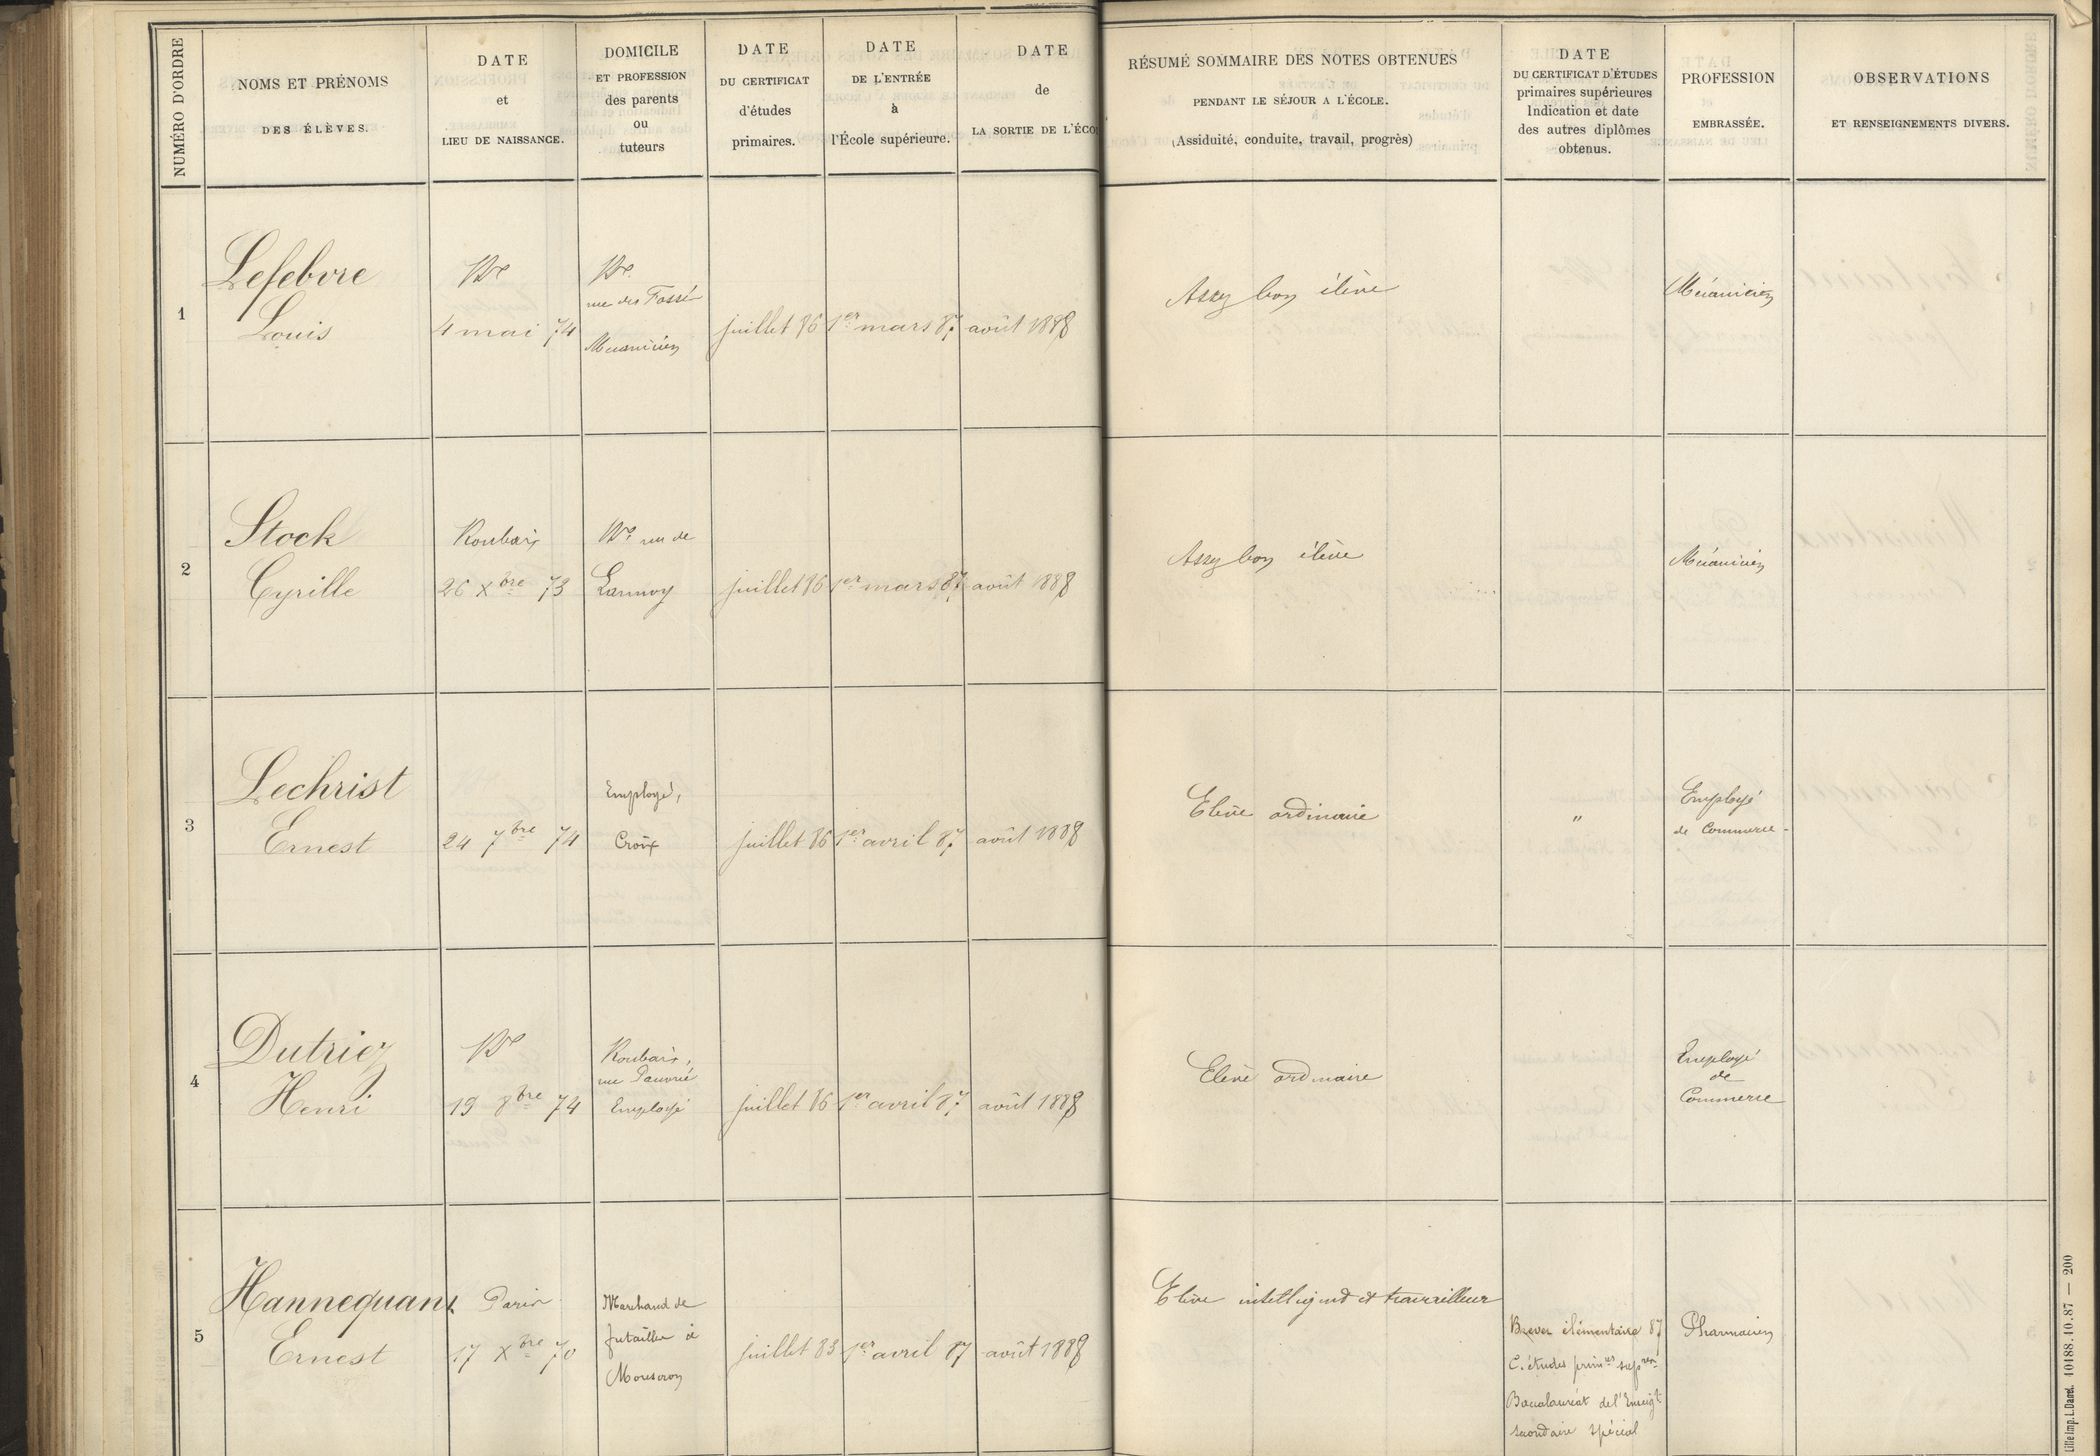 NUMÉRO D'ORDRE
NOMS ET PRÉNOMS
DES ÉLÈVES.
DATE
et
LIEU DE NAISSANCE.
DOMICILE
ET PROFESSION
des parents
ou
tuteurs
DATE
DU CERTIFICAT
d'études
primaires.
DATE
DE L'ENTRÉE
à
l'École supérieure.
DATE
de
LA SORTIE DE L'ÉCO
RÉSUMÉ SOMMAIRE DES NOTES OBTENUES
PENDANT LE SÉJOUR A L'ÉCOLE.
(Assiduité, conduite, travail, progrès)
DATE
DU CERTIFICAT D'ÉTUDES
primaires supérieures
Indication et date
des autres diplômes
obtenus.
PROFESSION
EMBRASSÉE.
OBSERVATIONS
ET RENSEIGNEMENTS DIVERS.
1
Lefebvre
Louis
4 mai 74
rue des Fossés
Mécanicien
juillet 86
1er mars 87
août 1888
Assez bon élève
Mécanicien
2
Stock
Cyrille
Roubaix
26 Xbre 73
rue de
Lannoy
juillet 86
1er mars 87
août 1888
Assez bon élève
Mécanicien
3
Lechrist
Ernest
24 7bre 74
Employé,
Croix
juillet 86
1er avril 87
août 1888
Elève ordinaire
"
Employé
de Commerce
4
Dutriez
Henri
19 8bre 74
Roubaix,
rue Pauvrée
Employé
juillet 86
1er avril 87
août 1888
Elève ordinaire
Employé
de
Commerce
5
Hannequant
Ernest
Paris
17 Xbre 70
Marchand de
futailles à
Mouscron
juillet 83
1er avril 87
août 1888
Elève intelligent et travailleur
Brevet élémentaire 87
C. études primres supres
Baccalauréat de l'Enseigt
secondaire spécial
Pharmacien
Lille Imp. L. Danel. 10188.10.87 — 200